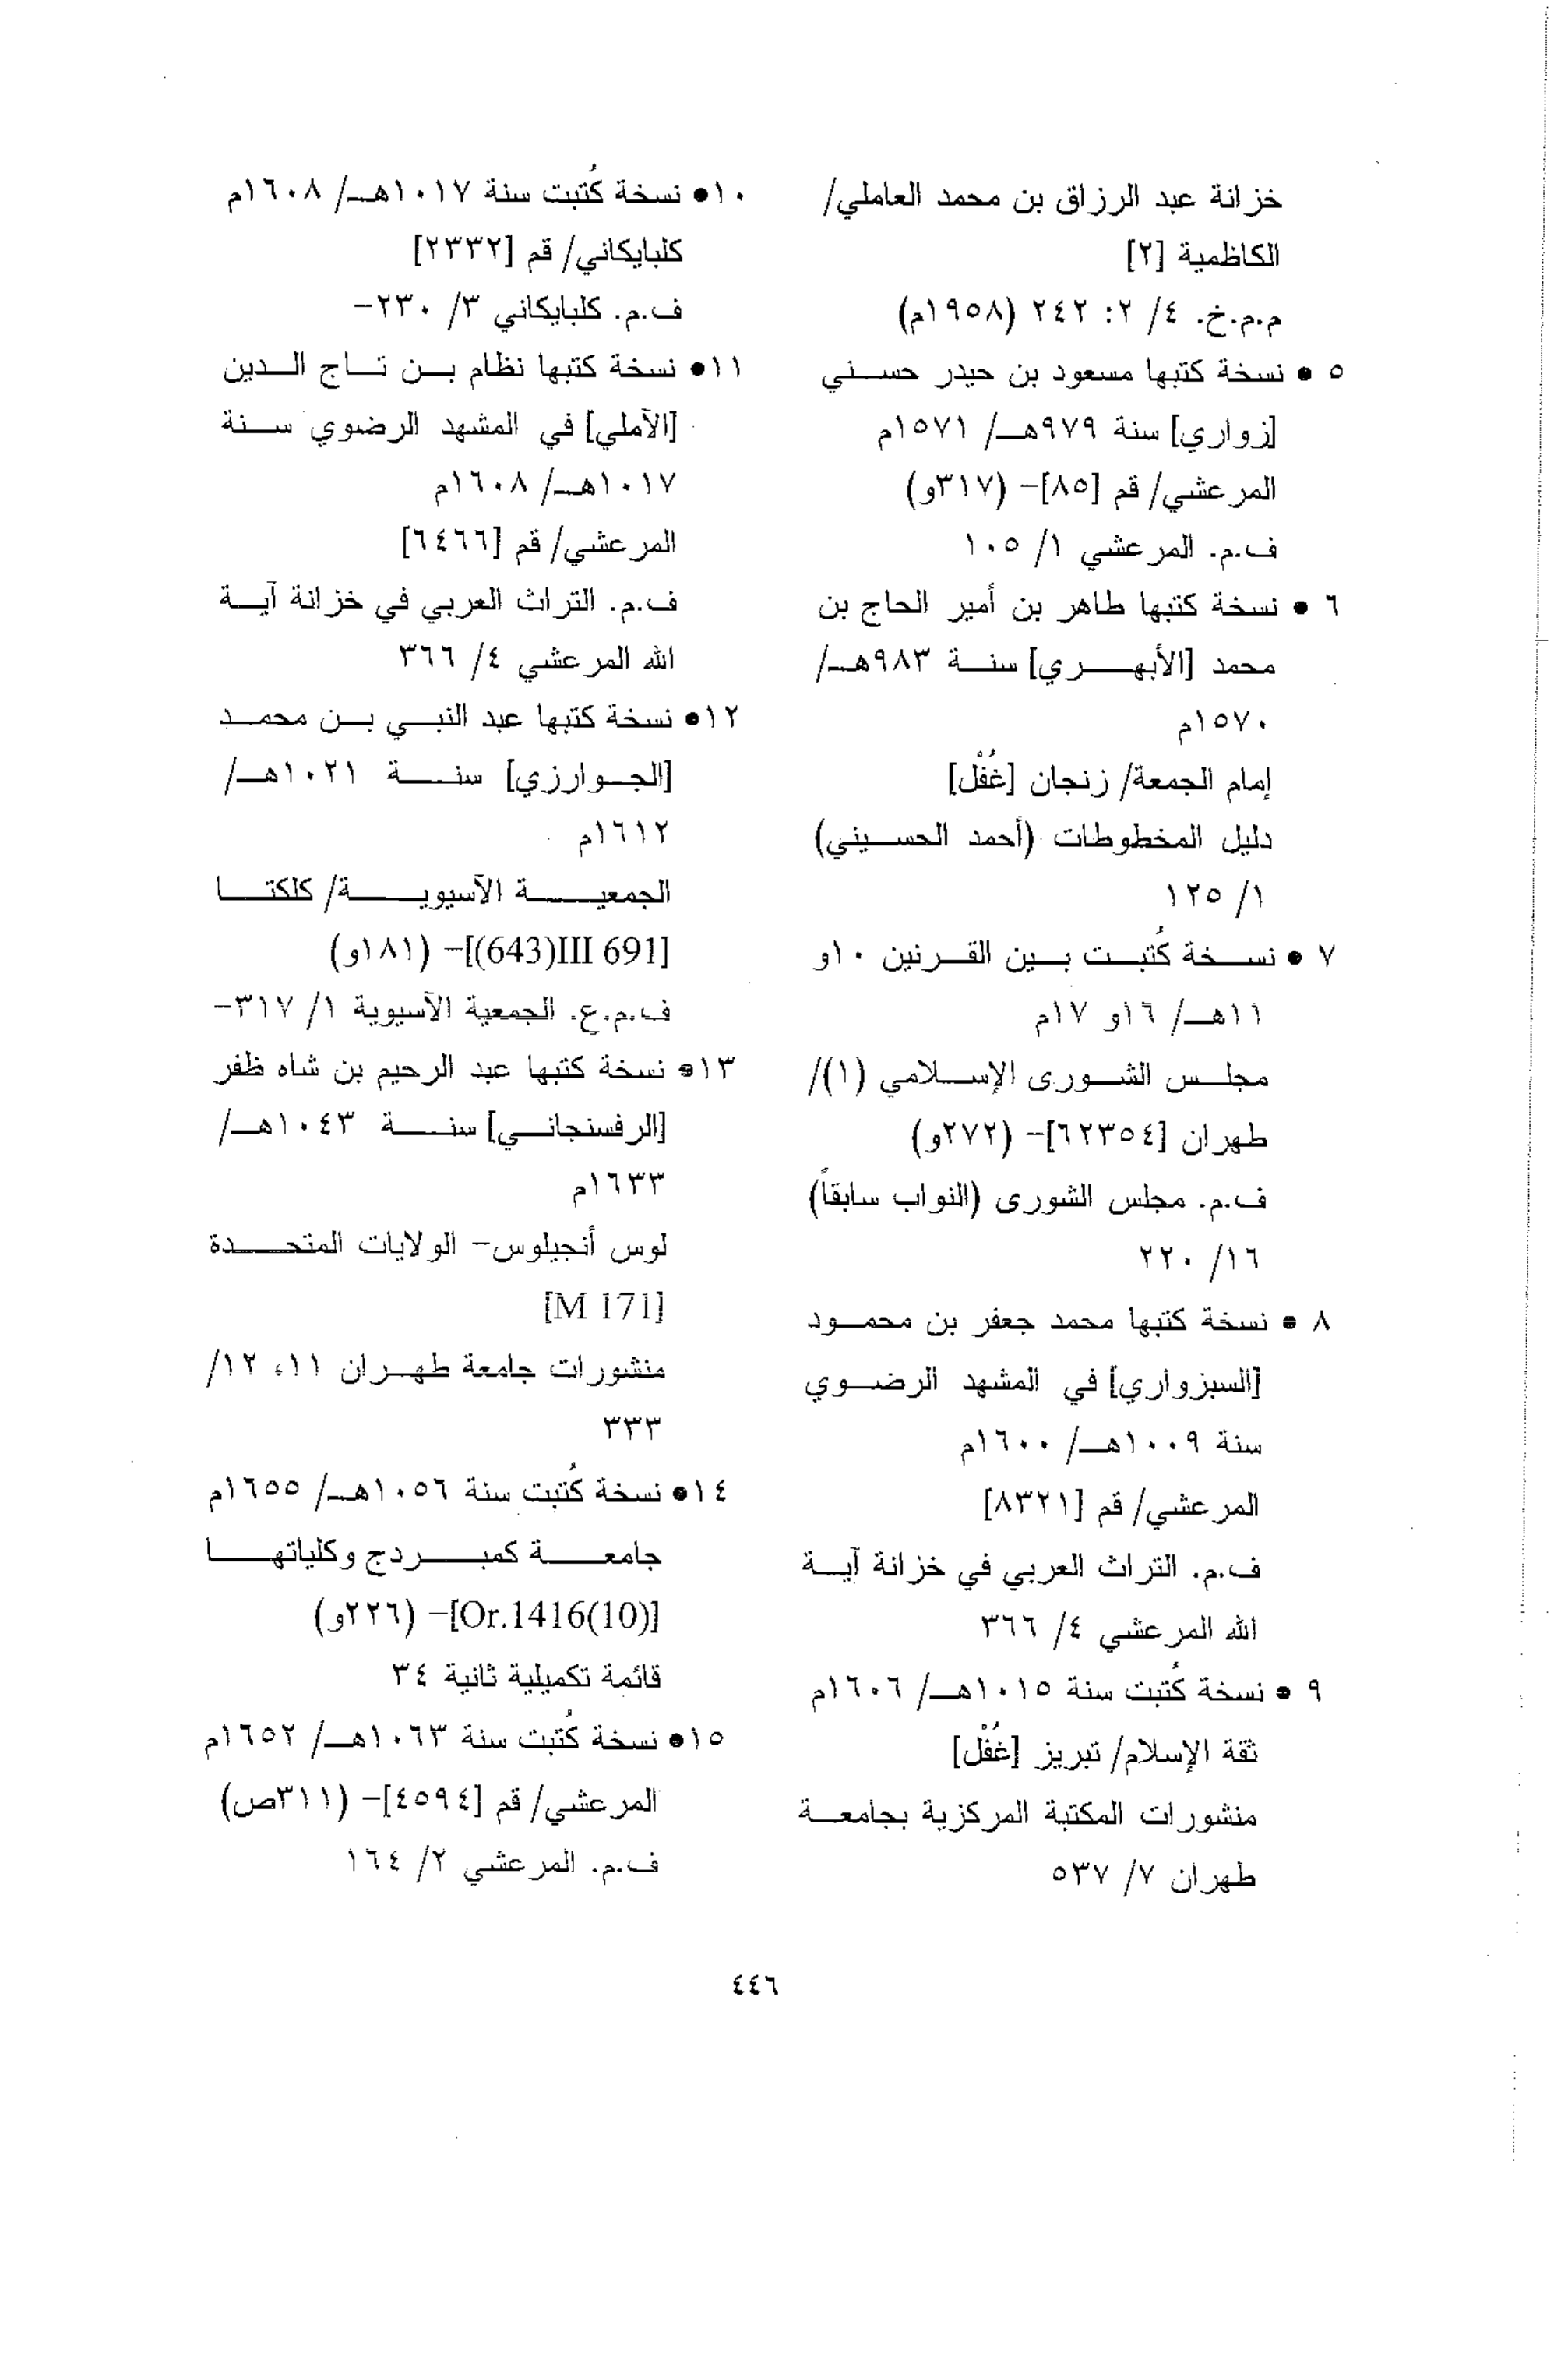 خزانة عبد الرزاق بن محمد العاملي/
الكاظمية [٢]
م.م.خ. ٤/ ٢: ٢٤٢ (١٩٥٨م)
٥ • نسخة كتبها مسعود بن حيدر حسني
[زواري] سنة ٩٧٩هـ/ ١٥٧١م
المرعشي/ قم [٨٥]- (٣١٧و)
ف.م. المرعشي ١/ ١٠٥
٦ • نسخة كتبها طاهر بن أمير الحاج بن
محمد [الأبهري] سنة ٩٨٣هـ/
١٥٧٠م
إمام الجمعة/ زنجان [غُفْل]
دليل المخطوطات (أحمد الحسيني)
١/ ١٢٥
٧ • نسخة كُتبت بين القرنين ١٠و
١١هـ/ ١٦و ١٧م
مجلس الشورى الإسلامي (١)/
طهران [٦٢٣٥٤]- (٢٧٢و)
ف.م. مجلس الشورى (النواب سابقاً)
١٦/ ٢٢٠
٨ • نسخة كتبها محمد جعفر بن محمود
[السبزواري] في المشهد الرضوي
سنة ١٠٠٩هـ/ ١٦٠٠م
المرعشي/ قم [٨٣٢١]
ف.م. التراث العربي في خزانة آية
الله المرعشي ٤/ ٣٦٦
٩ • نسخة كُتبت سنة ١٠١٥هـ/ ١٦٠٦م
ثقة الإسلام/ تبريز [غُفْل]
منشورات المكتبة المركزية بجامعة
طهران ٧/ ٥٣٧
١٠• نسخة كُتبت سنة ١٠١٧هـ/ ١٦٠٨م
كلبايكاني/ قم [٢٣٣٢]
ف.م. كلبايكاني ٣/ ٢٣٠-
١١• نسخة كتبها نظام بن تاج الدين
[الآملي] في المشهد الرضوي سنة
١٠١٧هـ/ ١٦٠٨م
المرعشي/ قم [٦٤٦٦]
ف.م. التراث العربي في خزانة آية
الله المرعشي ٤/ ٣٦٦
١٢• نسخة كتبها عبد النبي بن محمد
[الجوارزي] سنة ١٠٢١هـ/
١٦١٢م
الجمعية الآسيوية/ كلكتا
[691 III(643)]- (١٨١و)
ف.م.ع. الجمعية الآسيوية ١/ ٣١٧-
١٣• نسخة كتبها عبد الرحيم بن شاه ظفر
[الرفسنجاني] سنة ١٠٤٣هـ/
١٦٣٣م
لوس أنجيلوس- الولايات المتحدة
[M 171]
منشورات جامعة طهران ١١، ١٢/
٣٣٣
١٤• نسخة كُتبت سنة ١٠٥٦هـ/ ١٦٥٥م
جامعة كمبردج وكلياتها
[Or.1416(10)]- (٢٢٦و)
قائمة تكميلية ثانية ٣٤
١٥• نسخة كُتبت سنة ١٠٦٣هـ/ ١٦٥٢م
المرعشي/ قم [٤٥٩٤]- (٣١١ص)
ف.م. المرعشي ٢/ ١٦٤
٤٤٦